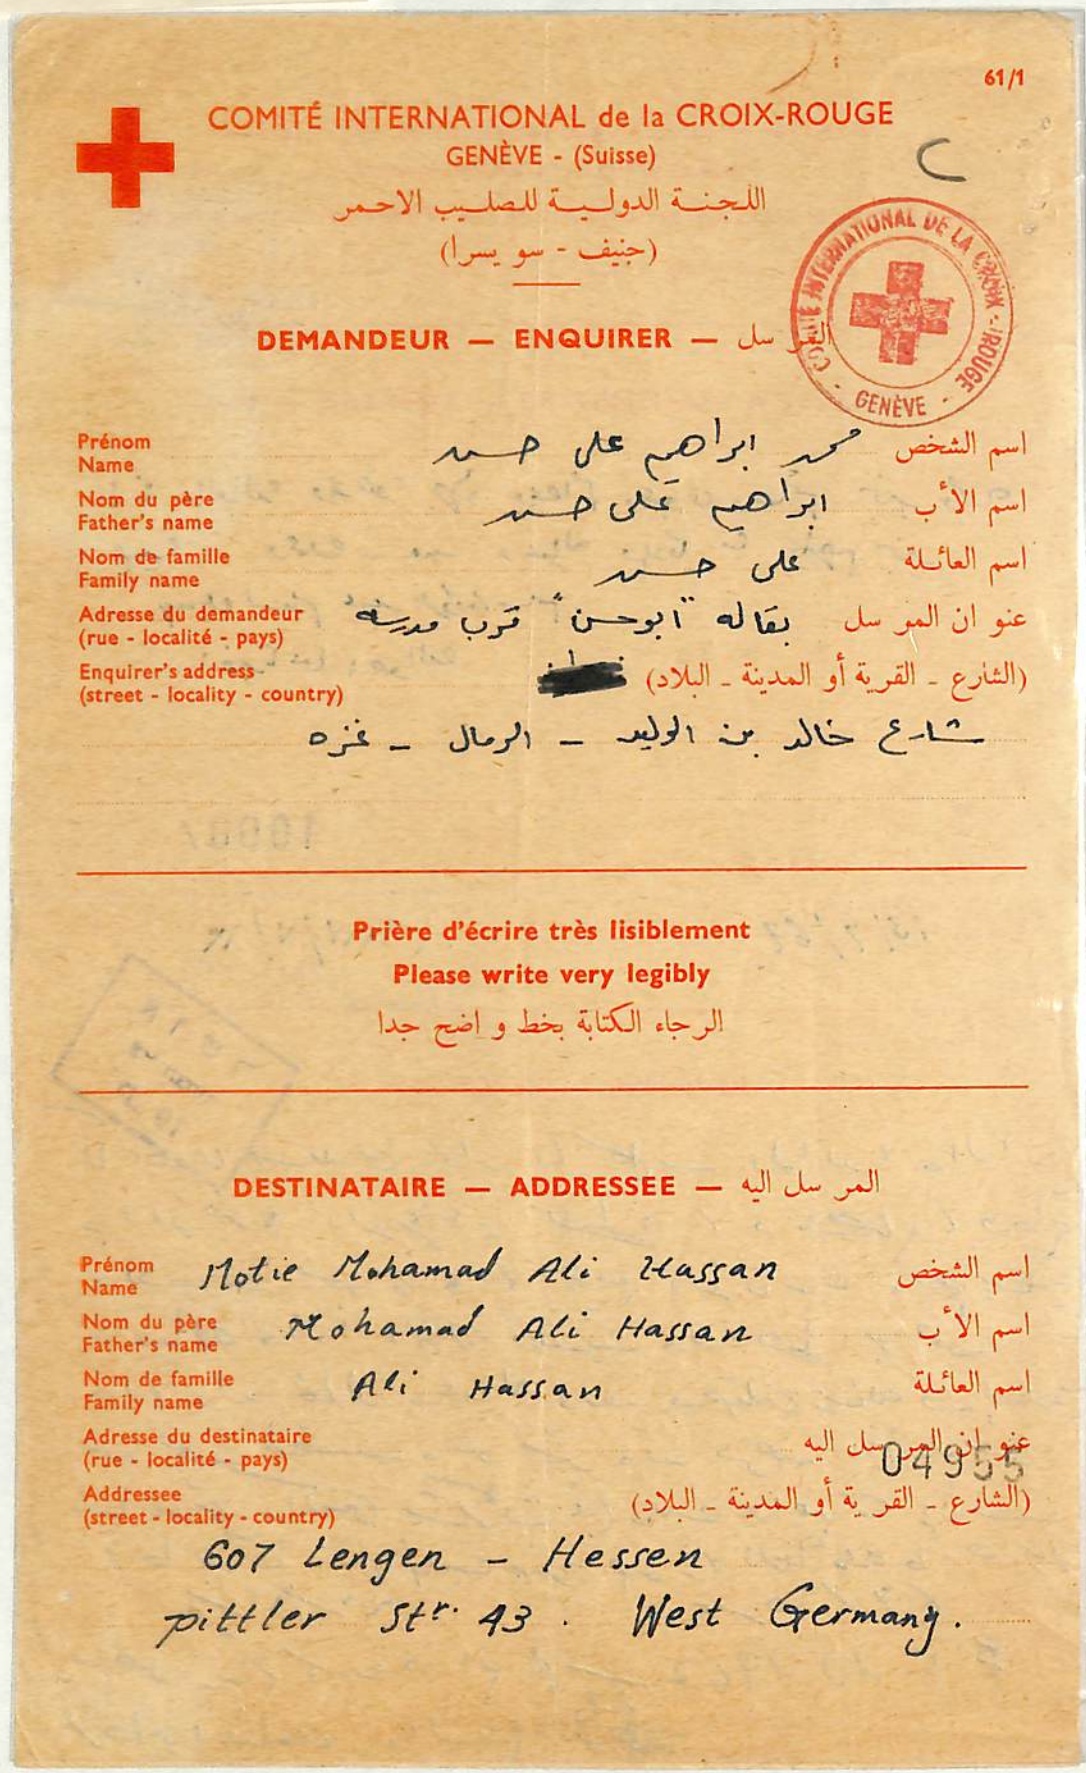 61/1
COMITÉ INTERNATIONAL de la CROIX-ROUGE
GENÈVE - (Suisse)
اللجنة الدولية للصليب الاحمر
(جنيف - سو يسرا)
COMITÉ INTERNATIONAL DE LA CROIX-ROUGE - GENÈVE -
DEMANDEUR — ENQUIRER — المر سل
Prénom
Name
اسم الشخص محمد ابراهيم على حسن
Nom du père
Father's name
اسم الأب ابراهيم على حسن
Nom de famille
Family name
اسم العائلة على حسن
Adresse du demandeur
(rue - localité - pays)
عنو ان المر سل بقاله "ابوحسن" قرب مدرسه
Enquirer's address
(street - locality - country)
(الشارع - القرية أو المدينة - البلاد)
شارع خالد بن الوليد - الرمال - غزه
Prière d'écrire très lisiblement
Please write very legibly
الرجاء الكتابة بخط و اضح جدا
DESTINATAIRE — ADDRESSEE — المر سل اليه
Prénom
Name
Motie Mohamad Ali Hassan اسم الشخص
Nom du père
Father's name
Mohamad Ali Hassan اسم الأب
Nom de famille
Family name
Ali Hassan اسم العائلة
Adresse du destinataire
(rue - localité - pays)
عنو ان المر سل اليه
04955
Addressee
(street - locality - country)
(الشارع - القر ية أو المدينة - البلاد)
607 Lengen - Hessen
pittler Str. 43 . West Germany.